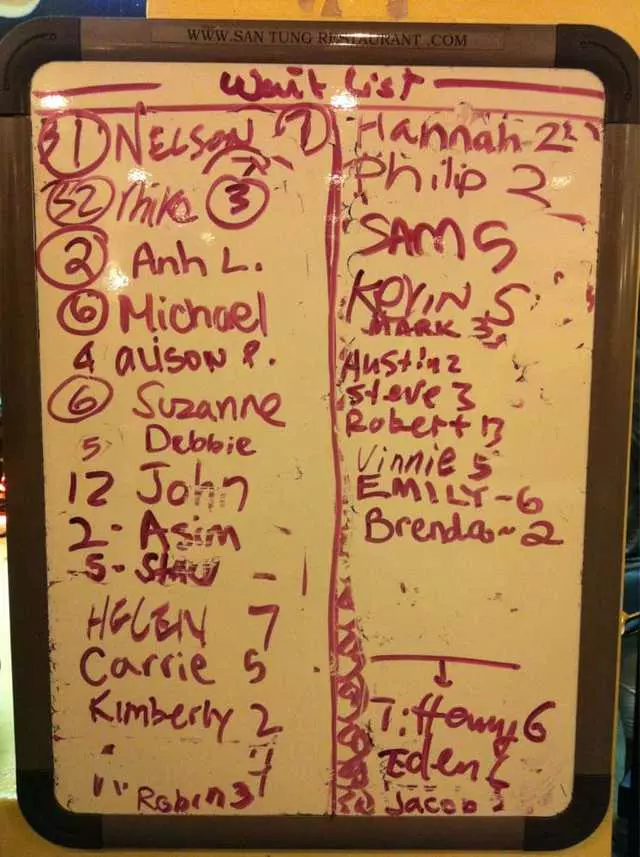 WWW.SAN TUNG RESTAURANT.COM
Wait List
NELSON 7
32 Mike 3
2 Anh L.
6 Michael
4 alison P.
6 Suzanne
5 Debbie
12 John
2- Asim
5-
HELEN 7
Carrie 5
Kimberly 2
Robin 3
Hannah 2
Philip 2
SAM 5
KEVIN 5
MARK 3
Austin 2
Steve 3
Robert 13
Vinnie 5
EMILY-6
Brenda-2
Tiffany 6
Eden
Jacob